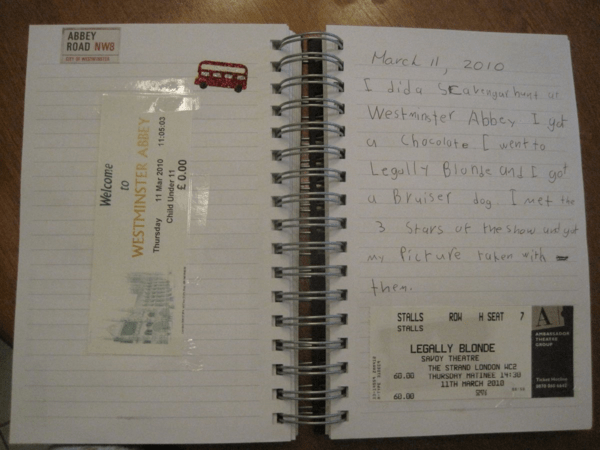 ABBEY
ROAD NW8
CITY OF WESTMINSTER
Welcome
to
WESTMINSTER ABBEY
Thursday 11 Mar 2010 11:05:03
Child Under 11
£ 0.00
March 11, 2010
I did a Scavingurhunt at
Westminster Abbey I got
a Chocolate. I went to
Legully Blonde and I got
a Bruiser dog. I met the
3 stars at the show and got
my Picture taken with
them.
STALLS ROW H SEAT 7
STALLS
LEGALLY BLONDE
SAVOY THEATRE
THE STRAND LONDON WC2
60.00 THURSDAY MATINEE 14:30
11TH MARCH 2010
60.00
AMBASSADOR
THEATRE
GROUP